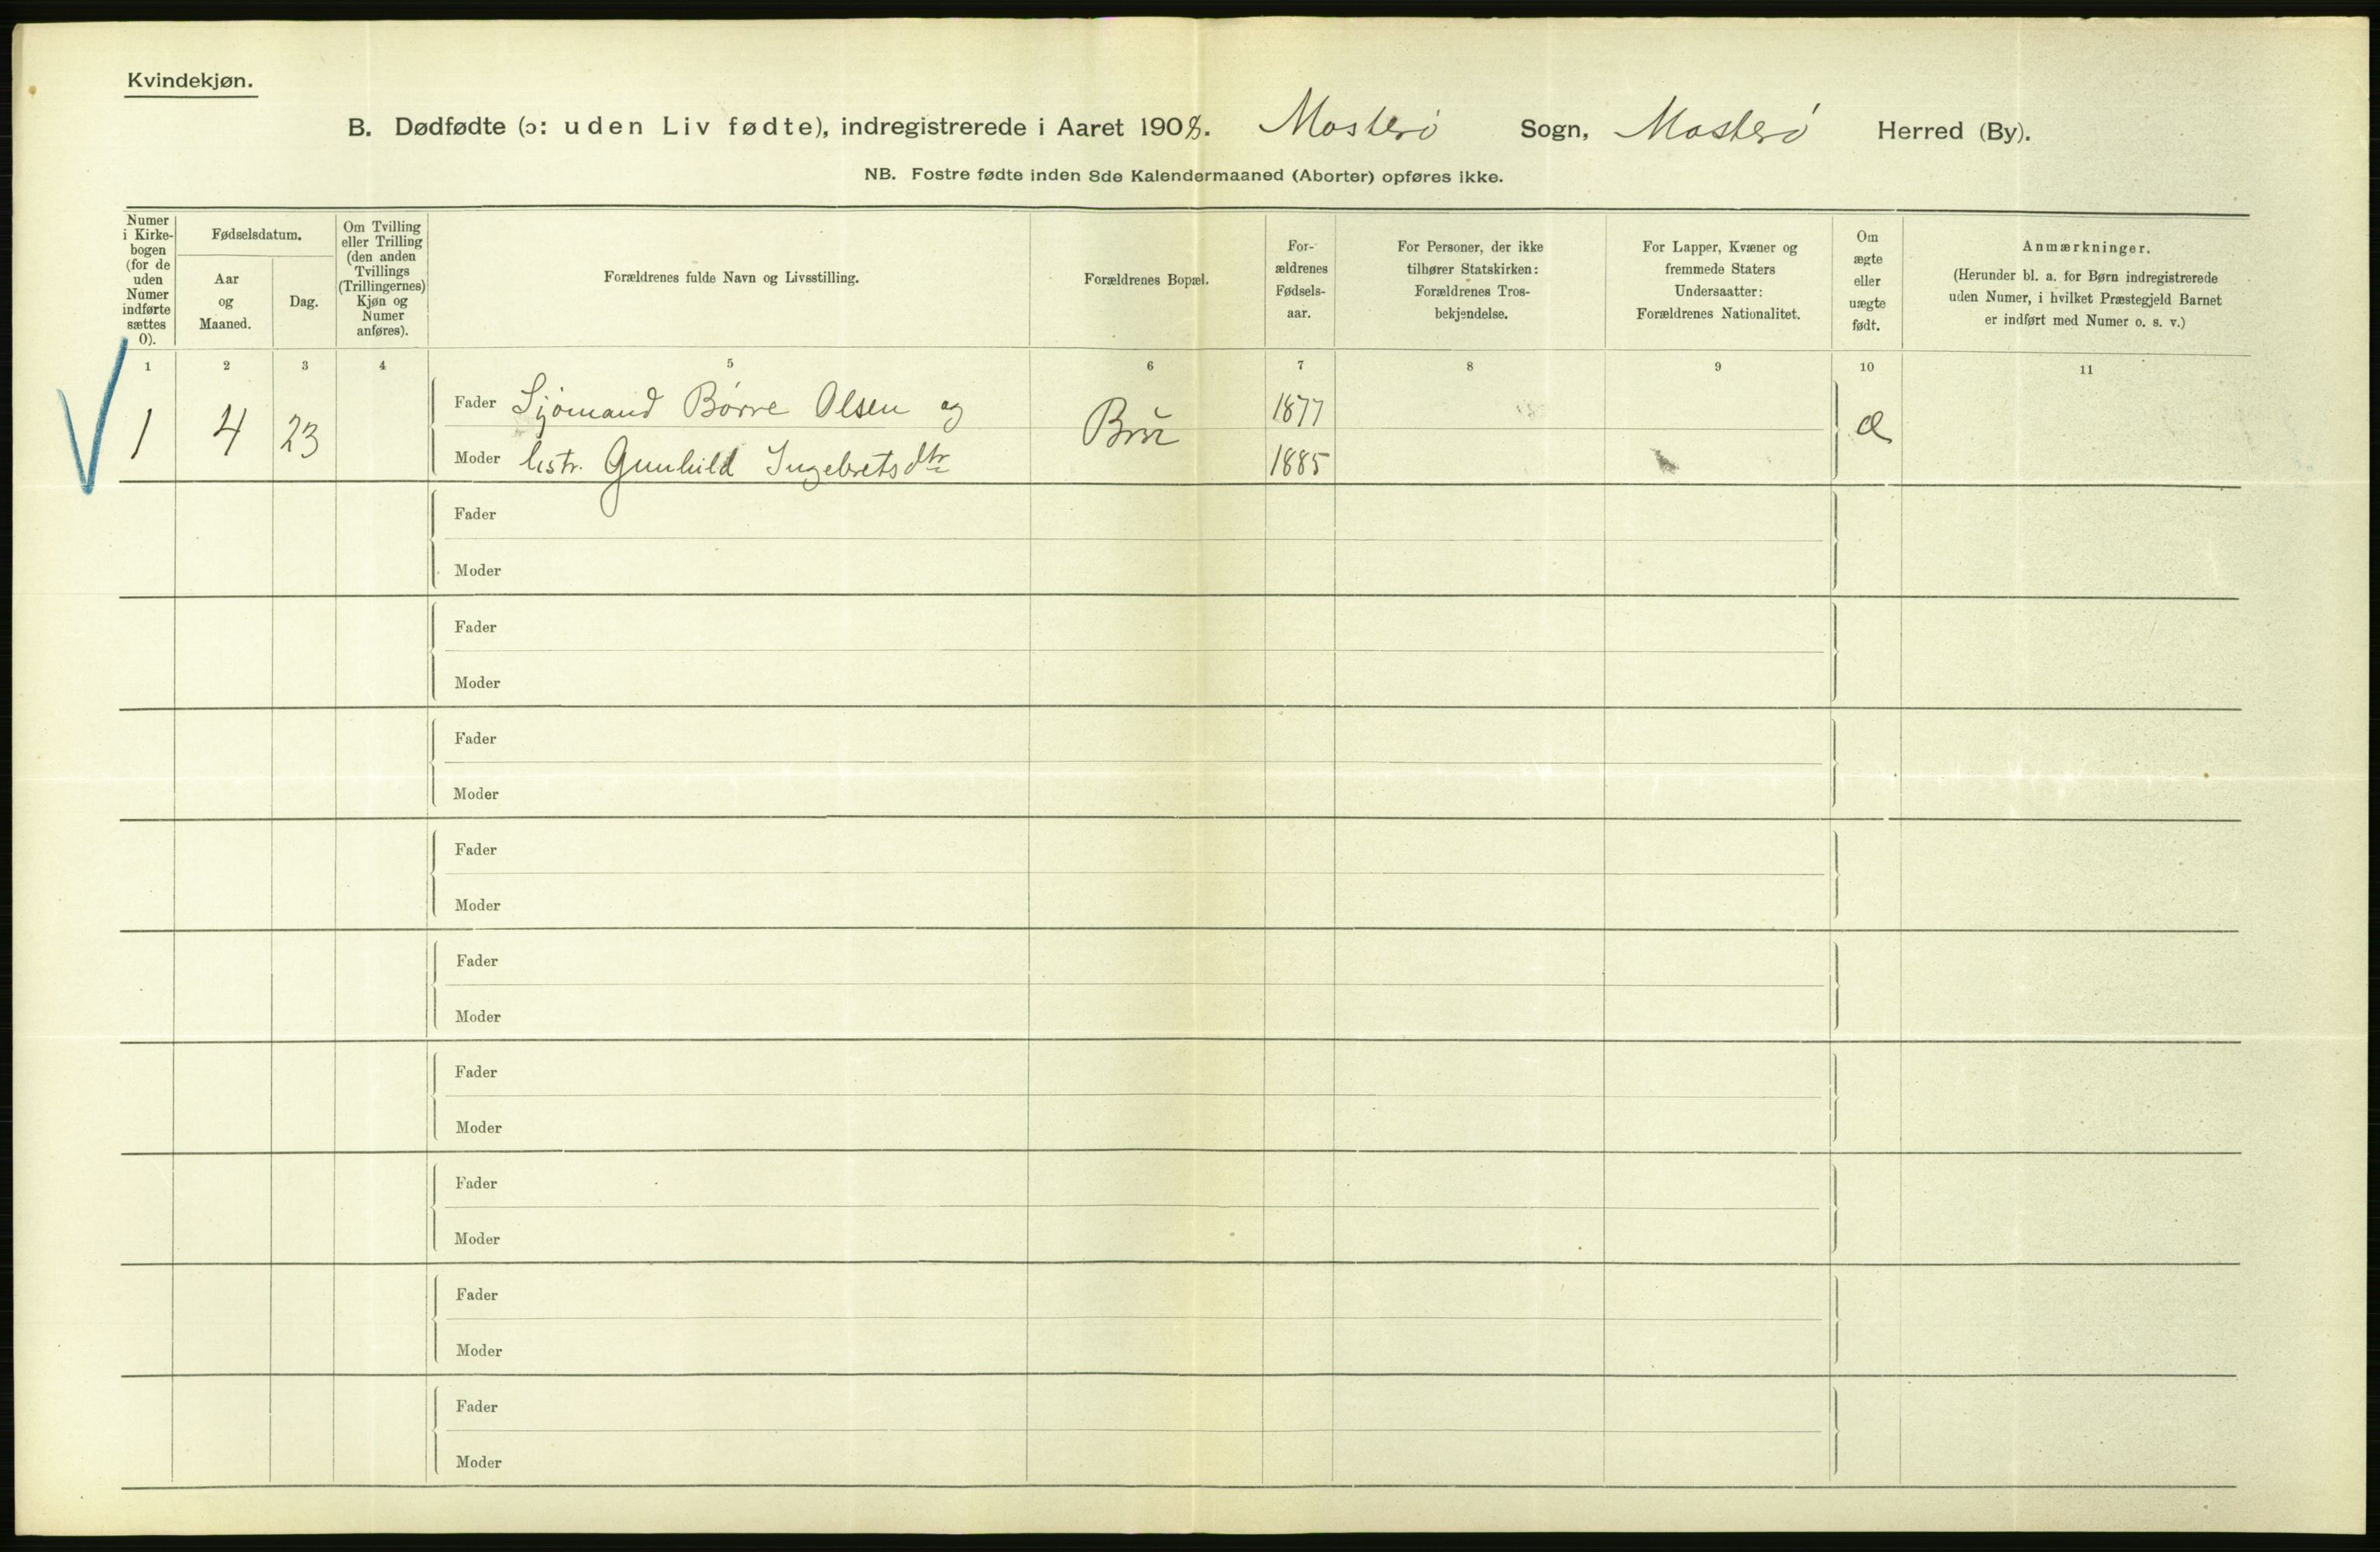 Kvindekjøn.
B. Dødfødte (ɔ: uden Liv fødte), indregistrerede i Aaret 1908. Mosterø Sogn, Mosterø Herred (By).
NB. Fostre fødte inden 8de Kalendermaaned (Aborter) opføres ikke.
Numer
i Kirke-
bogen
(for de
uden
Numer
indførte
sættes
0).
Fødselsdatum.
Aar
og
Maaned.
Dag.
Om Tvilling
eller Trilling
(den anden
Tvillings
(Trillingernes)
Kjøn og
Numer
anføres).
Forældrenes fulde Navn og Livsstilling.
Forældrenes Bopæl.
For-
ældrenes
Fødsels-
aar.
For Personer, der ikke
tilhører Statskirken:
Forældrenes Tros-
bekjendelse.
For Lapper, Kvæner og
fremmede Staters
Undersaatter:
Forældrenes Nationalitet.
Om
ægte
eller
uægte
født.
Anmærkninger.
(Herunder bl. a. for Børn indregistrerede
uden Numer, i hvilket Præstegjeld Barnet
er indført med Numer o. s. v.)
1 2 3 4 5 6 7 8 9 10 11
Fader Sjömand Börre Olsen og 1877
1 4 23 Bru Æ
Moder hstr. Gunhild Ingebretsdtr 1885
Fader
Moder
Fader
Moder
Fader
Moder
Fader
Moder
Fader
Moder
Fader
Moder
Fader
Moder
Fader
Moder
Fader
Moder